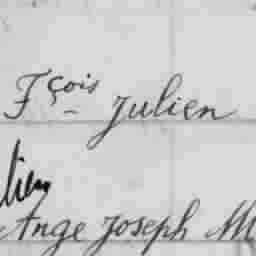 Fçois Julien
lien
Ange Joseph M